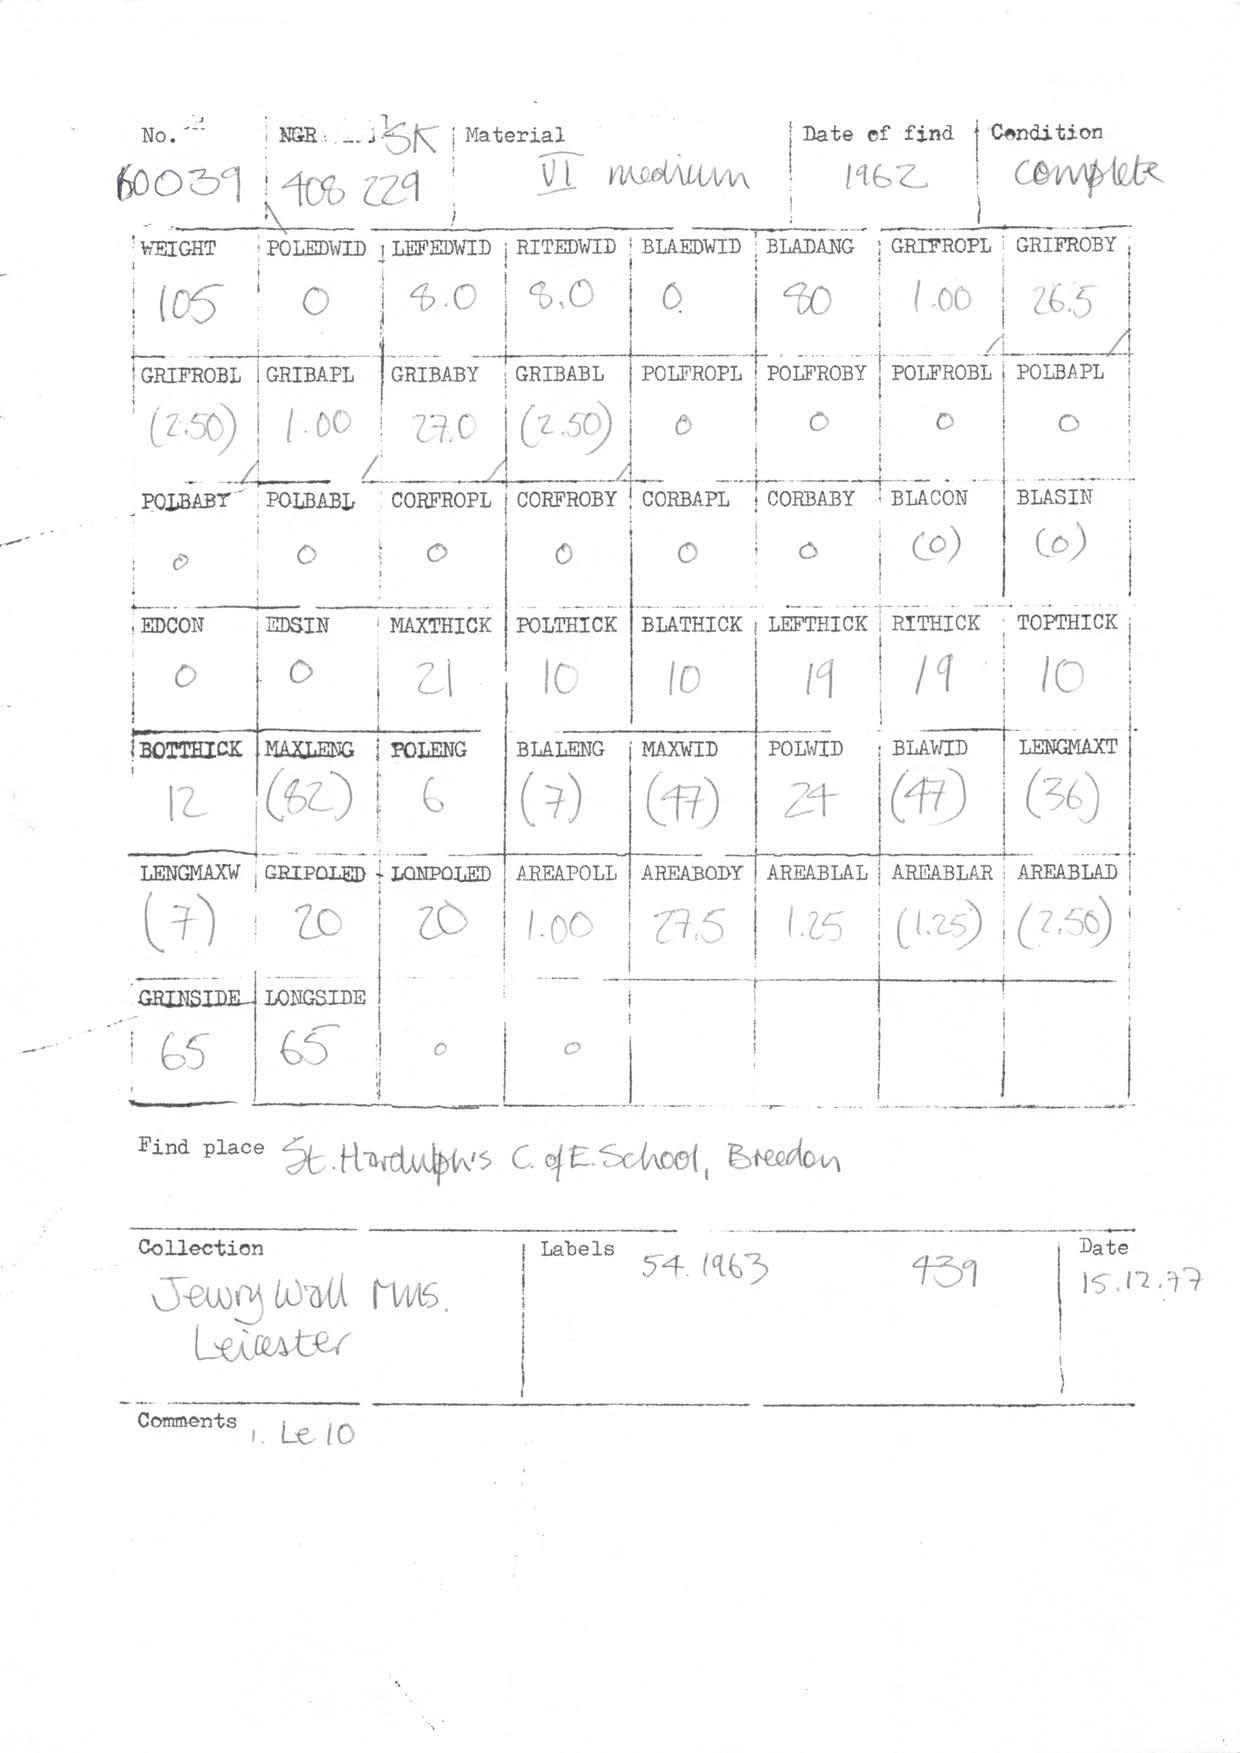 No. NGR SK Material Date of find Condition
60039 408 229 VI medium 1962 complete
WEIGHT POLEDWID LEFEDWID RITEDWID BLAEDWID BLADANG GRIFROPL GRIFROBY
105 0 8.0 8.0 0. 80 1.00 26.5
GRIFROBL GRIBAPL GRIBABY GRIBABL POLFROPL POLFROBY POLFROBL POLBAPL
(2.50) 1.00 27.0 (2.50) 0 0 0 0
POLBABY POLBABL CORFROPL CORFROBY CORBAPL CORBABY BLACON BLASIN
0 0 0 0 0 0 (0) (0)
EDCON EDSIN MAXTHICK POLTHICK BLATHICK LEFTHICK RITHICK TOPTHICK
0 0 21 10 10 19 19 10
BOTTHICK MAXLENG POLENG BLALENG MAXWID POLWID BLAWID LENGMAXT
12 (82) 6 (7) (47) 24 (47) (36)
LENGMAXW GRIPOLED LONPOLED AREAPOLL AREABODY AREABLAL AREABLAR AREABLAD
(7) 20 20 1.00 27.5 1.25 (1.25) (2.50)
GRINSIDE LONGSIDE
65 65 0 0
Find place St. Hardulph's C. of E. School, Breedon
Collection Labels 54.1963 439 Date
Jewry Wall Mus. 15.12.77
Leicester
Comments 1. Le 10